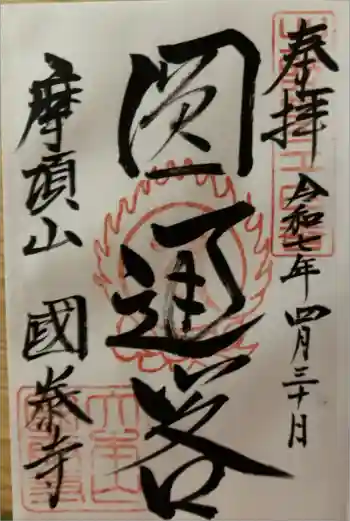 奉拝
令和七年四月三十日
圓通閣
摩頂山
國泰寺